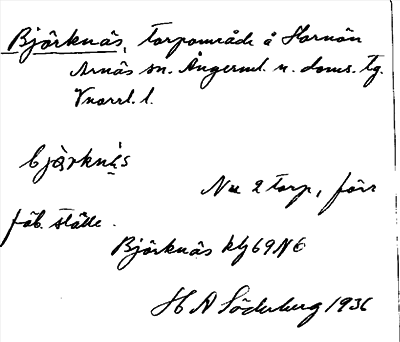 Björknäs, torpområde å Hornön
Arnäs sn. Ångerml. n. doms. tg.
Vnorrl. l.
bjä̀rknä̀s
Nu 2 torp, förr
fäb.ställe.
Björknäs klj 69 NE
H A Söderberg 1936